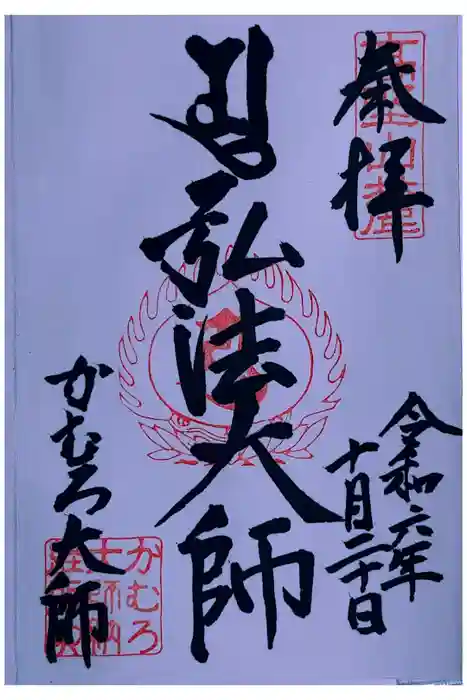 奉拝
高野山麓
令和六年
十月二十日
弘法大師
かむろ大師
かむろ